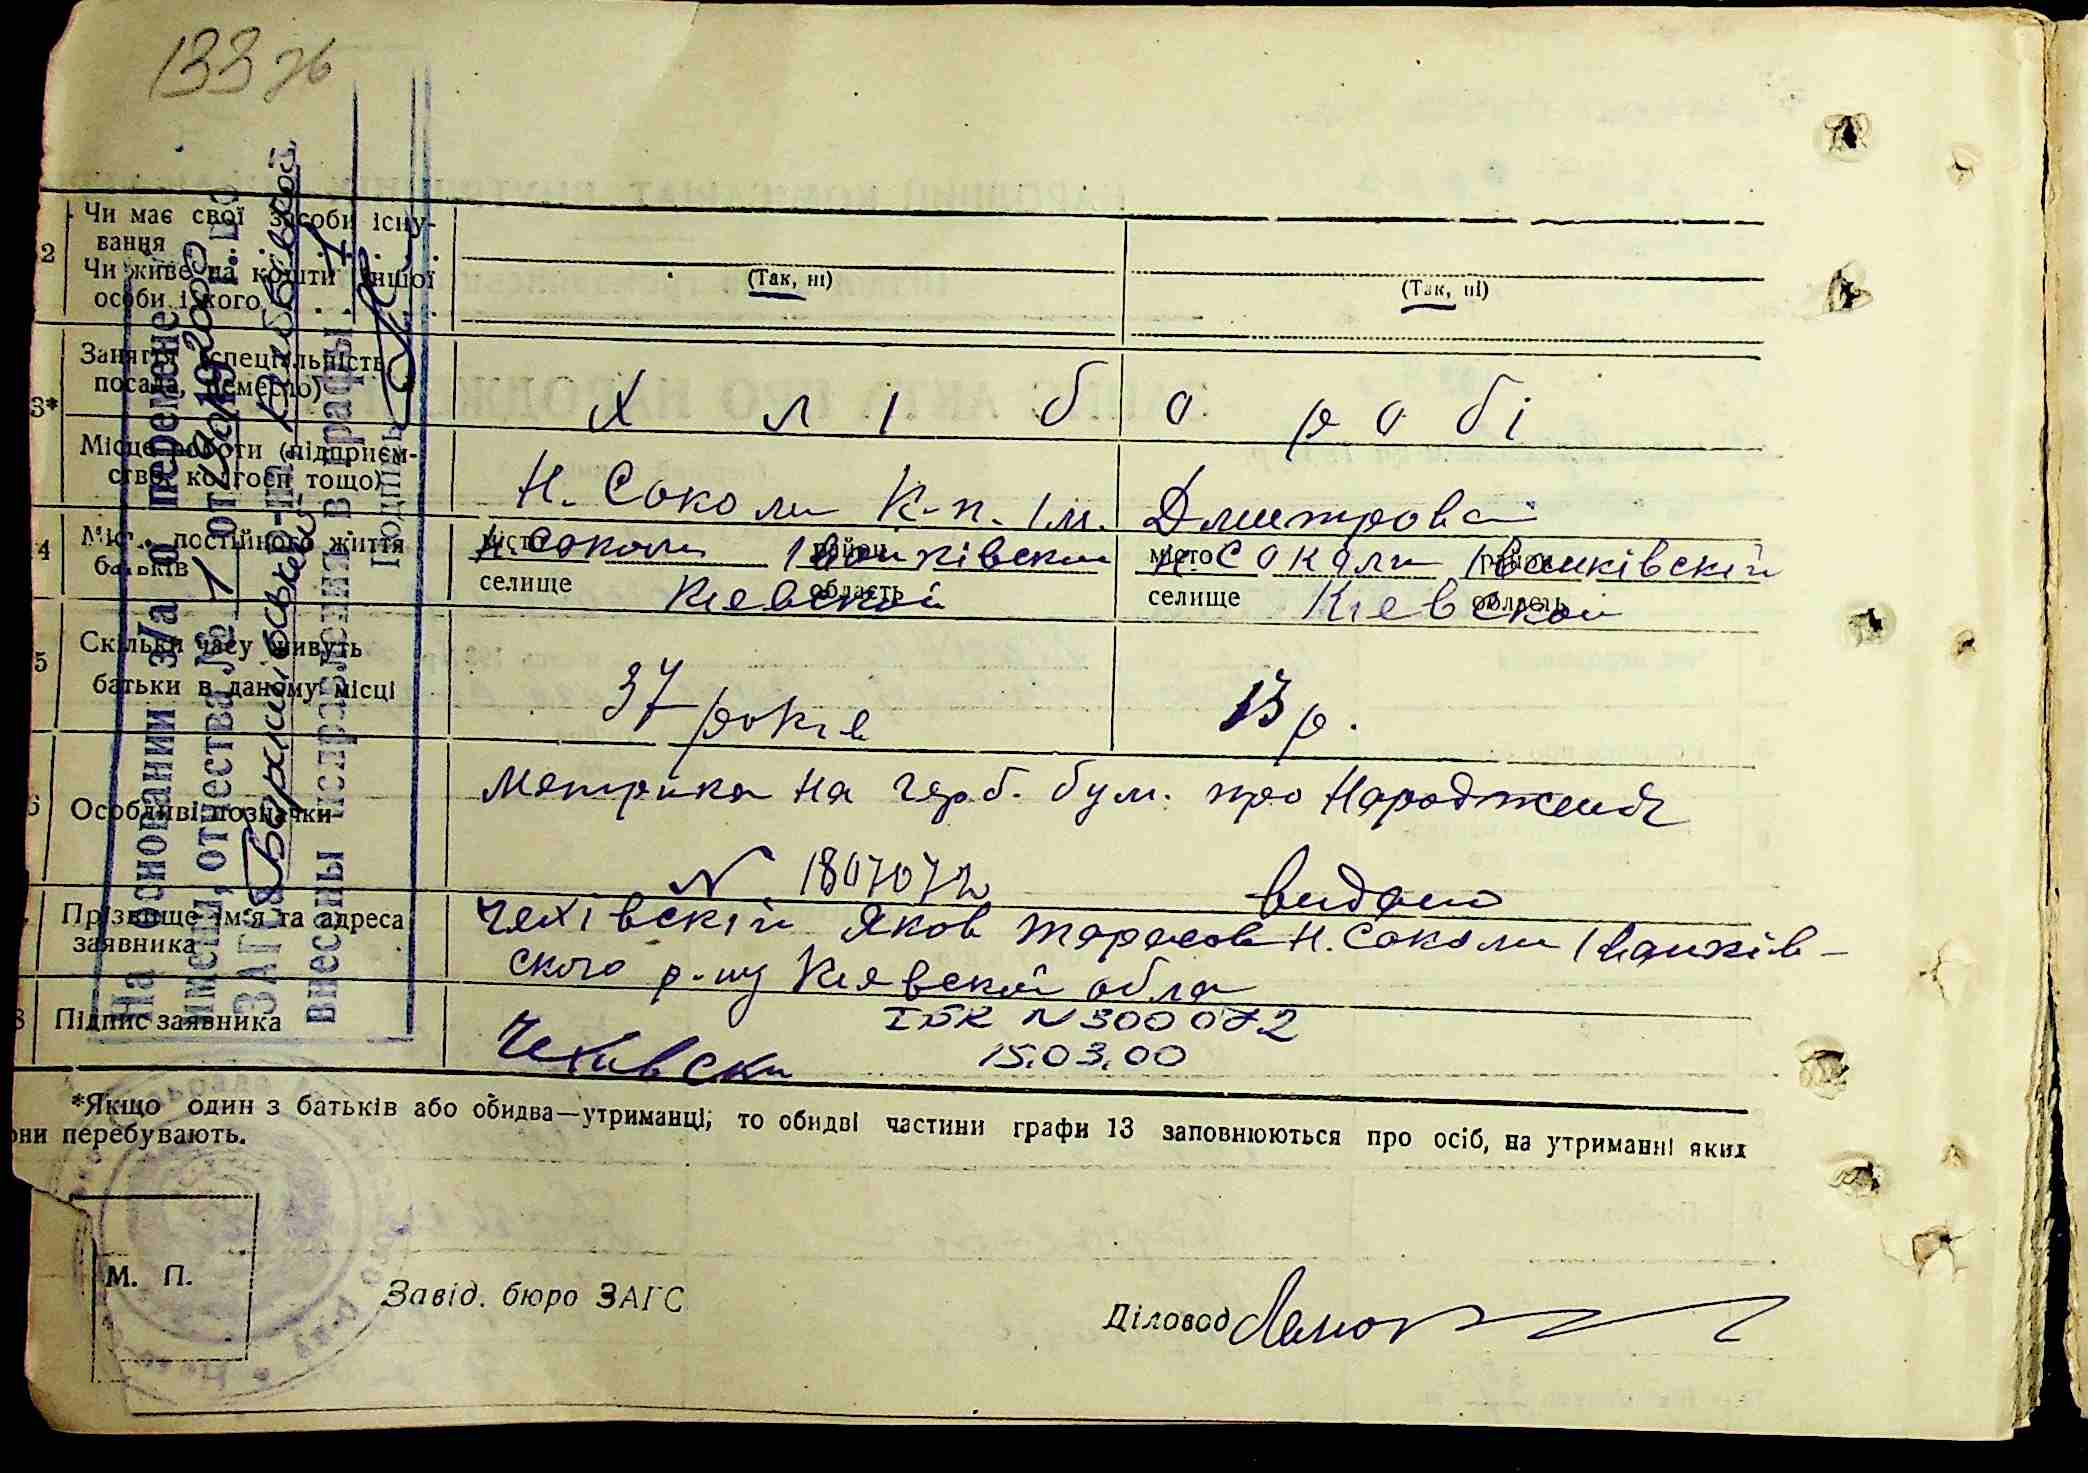 133 зв
2 Чи має свої засоби існу-
вання
Чи живе на кошти іншої
особи і кого
(Так, ні)
(Так, ні)
3* Заняття (спеціальність,
посада, ремесло)
Хліборобі
Місце роботи (підприєм-
ство, колгосп тощо)
Н. Соколи К-п. Ім. Дмитрова
4 Місце постійного життя
батьків
місто район місто район
Н. Соколи Іванківский Н. Соколи Іванківскій
селище область селище область
Кіевской Кіевской
5 Скільки часу живуть
батьки в даному місці
37 років 13 р.
6 Особливі позначки
Метрика на герб. бум. про Народження
N 1807072 видано
Прізвище, ім'я та адреса
заявника
Чехівскій Яков Тарасов Н. Соколи Іванків-
ского р-ну Киевской обла
8 Підпис заявника
ІБК N 300072
Чехивски 15.03.00
*Якщо один з батьків або обидва—утриманці, то обидві частини графи 13 заповнюються про осіб, на утриманні яких
они перебувають.
М. П.
Завід. бюро ЗАГС
Діловод
На основании з/а о перемене
имени, отчества № 1 от
ЗАГС
внесены исправления в графы: 1
Подпись